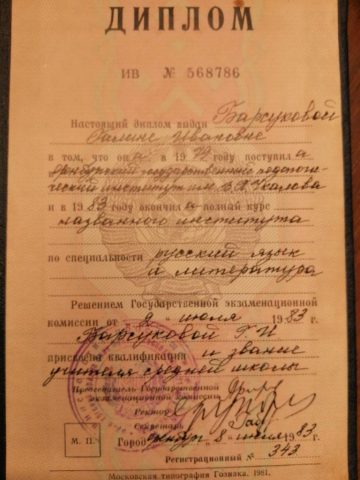 ДИПЛОМ
ИВ № 568786
Настоящий диплом выдан Барсуковой
Галине Ивановне
в том, что она в 19 году поступила в
Оренбургский государственный педагоги-
ческий институт им. В.П. Чкалова
и в 1983 году окончила полный курс
названного института
по специальности русский язык
и литература
Решением Государственной экзаменационной
комиссии от 2 " июля 1983 г.
Барсуковой Г И
присвоена квалификация и звание
учителя средней школы
Председатель Государственной
экзаменационной комиссии
Ректор
Секретарь
М. П. Город Оренбург 8 " июля 1983 г.
Регистрационный № 343
Московская типография Гознака. 1981.